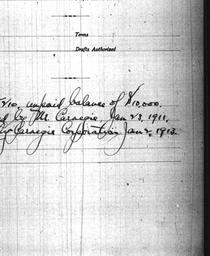 Terms
Drafts Authorized
unpaid balance of $10,000.
d by Mr. Carnegie, Jan 23, 1911.
by Carnegie Corporation Jan 2, 1913.